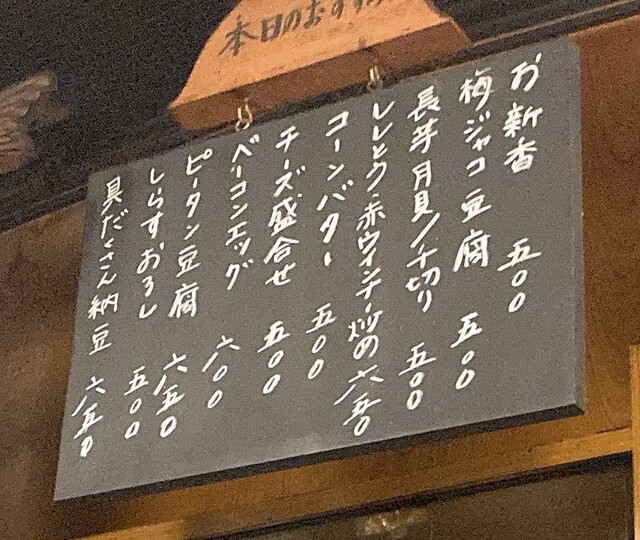 本日のおすすめ
お新香 五〇〇
梅ジャコ豆腐 五〇〇
長芋月見/千切り 五〇〇
ししとう・赤ウインナー炒め 六五〇
コーンバター 五〇〇
チーズ盛合せ 五〇〇
ベーコンエッグ 六〇〇
ピータン豆腐 六五〇
しらすおろし 五〇〇
具だくさん納豆 六五〇